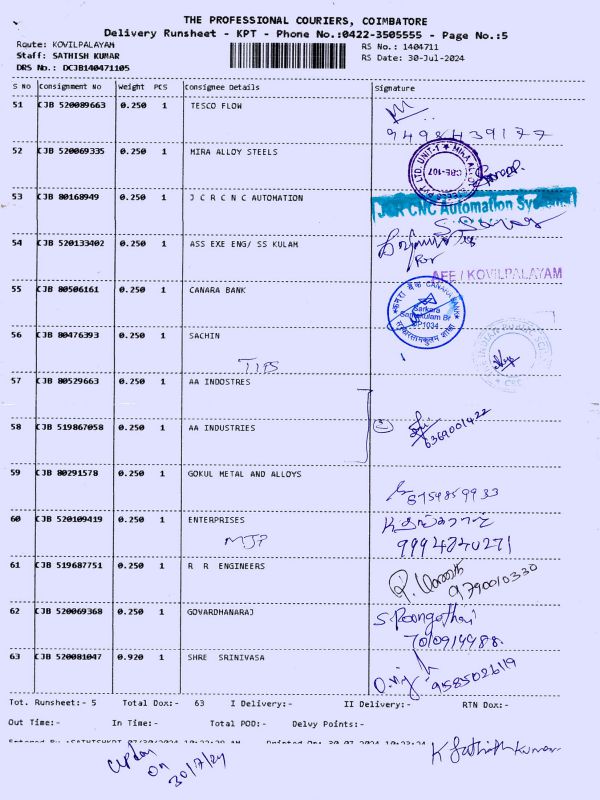 THE PROFESSIONAL COURIERS, COIMBATORE
Delivery Runsheet - KPT - Phone No.:0422-3505555 - Page No.:5
Route: KOVILPALAYAM
Staff: SATHISH KUMAR
DRS No.: DCJB140471105
RS No.: 1404711
RS Date: 30-Jul-2024
S No Consignment No Weight PCS Consignee Details Signature
51 CJB 520089663 0.250 1 TESCO FLOW
9498439177
52 CJB 520069335 0.250 1 MIRA ALLOY STEELS
53 CJB 80168949 0.250 1 J C R C N C AUTOMATION
JCR CNC Automation Systems
54 CJB 520133402 0.250 1 ASS EXE ENG/ SS KULAM
For
AEE / KOVILPALAYAM
55 CJB 80506161 0.250 1 CANARA BANK
CANARA BANK
56 CJB 80476393 0.250 1 SACHIN
TIPS
57 CJB 80529663 0.250 1 AA INDOSTRES
58 CJB 519867058 0.250 1 AA INDUSTRIES
2
6369001422
59 CJB 80291578 0.250 1 GOKUL METAL AND ALLOYS
8759859933
60 CJB 520109419 0.250 1 ENTERPRISES
MJP
9994840271
61 CJB 519687751 0.250 1 R R ENGINEERS
9790010330
62 CJB 520069368 0.250 1 GOVARDHANARAJ
S. Poongothai
63 CJB 520081047 0.920 1 SHRE SRINIVASA
9585026119
Tot. Runsheet:- 5 Total Dox:- 63 I Delivery:- II Delivery:- RTN Dox:-
Out Time:- In Time:- Total POD:- Delvy Points:-
on
30/7/24
K Sathish kumar